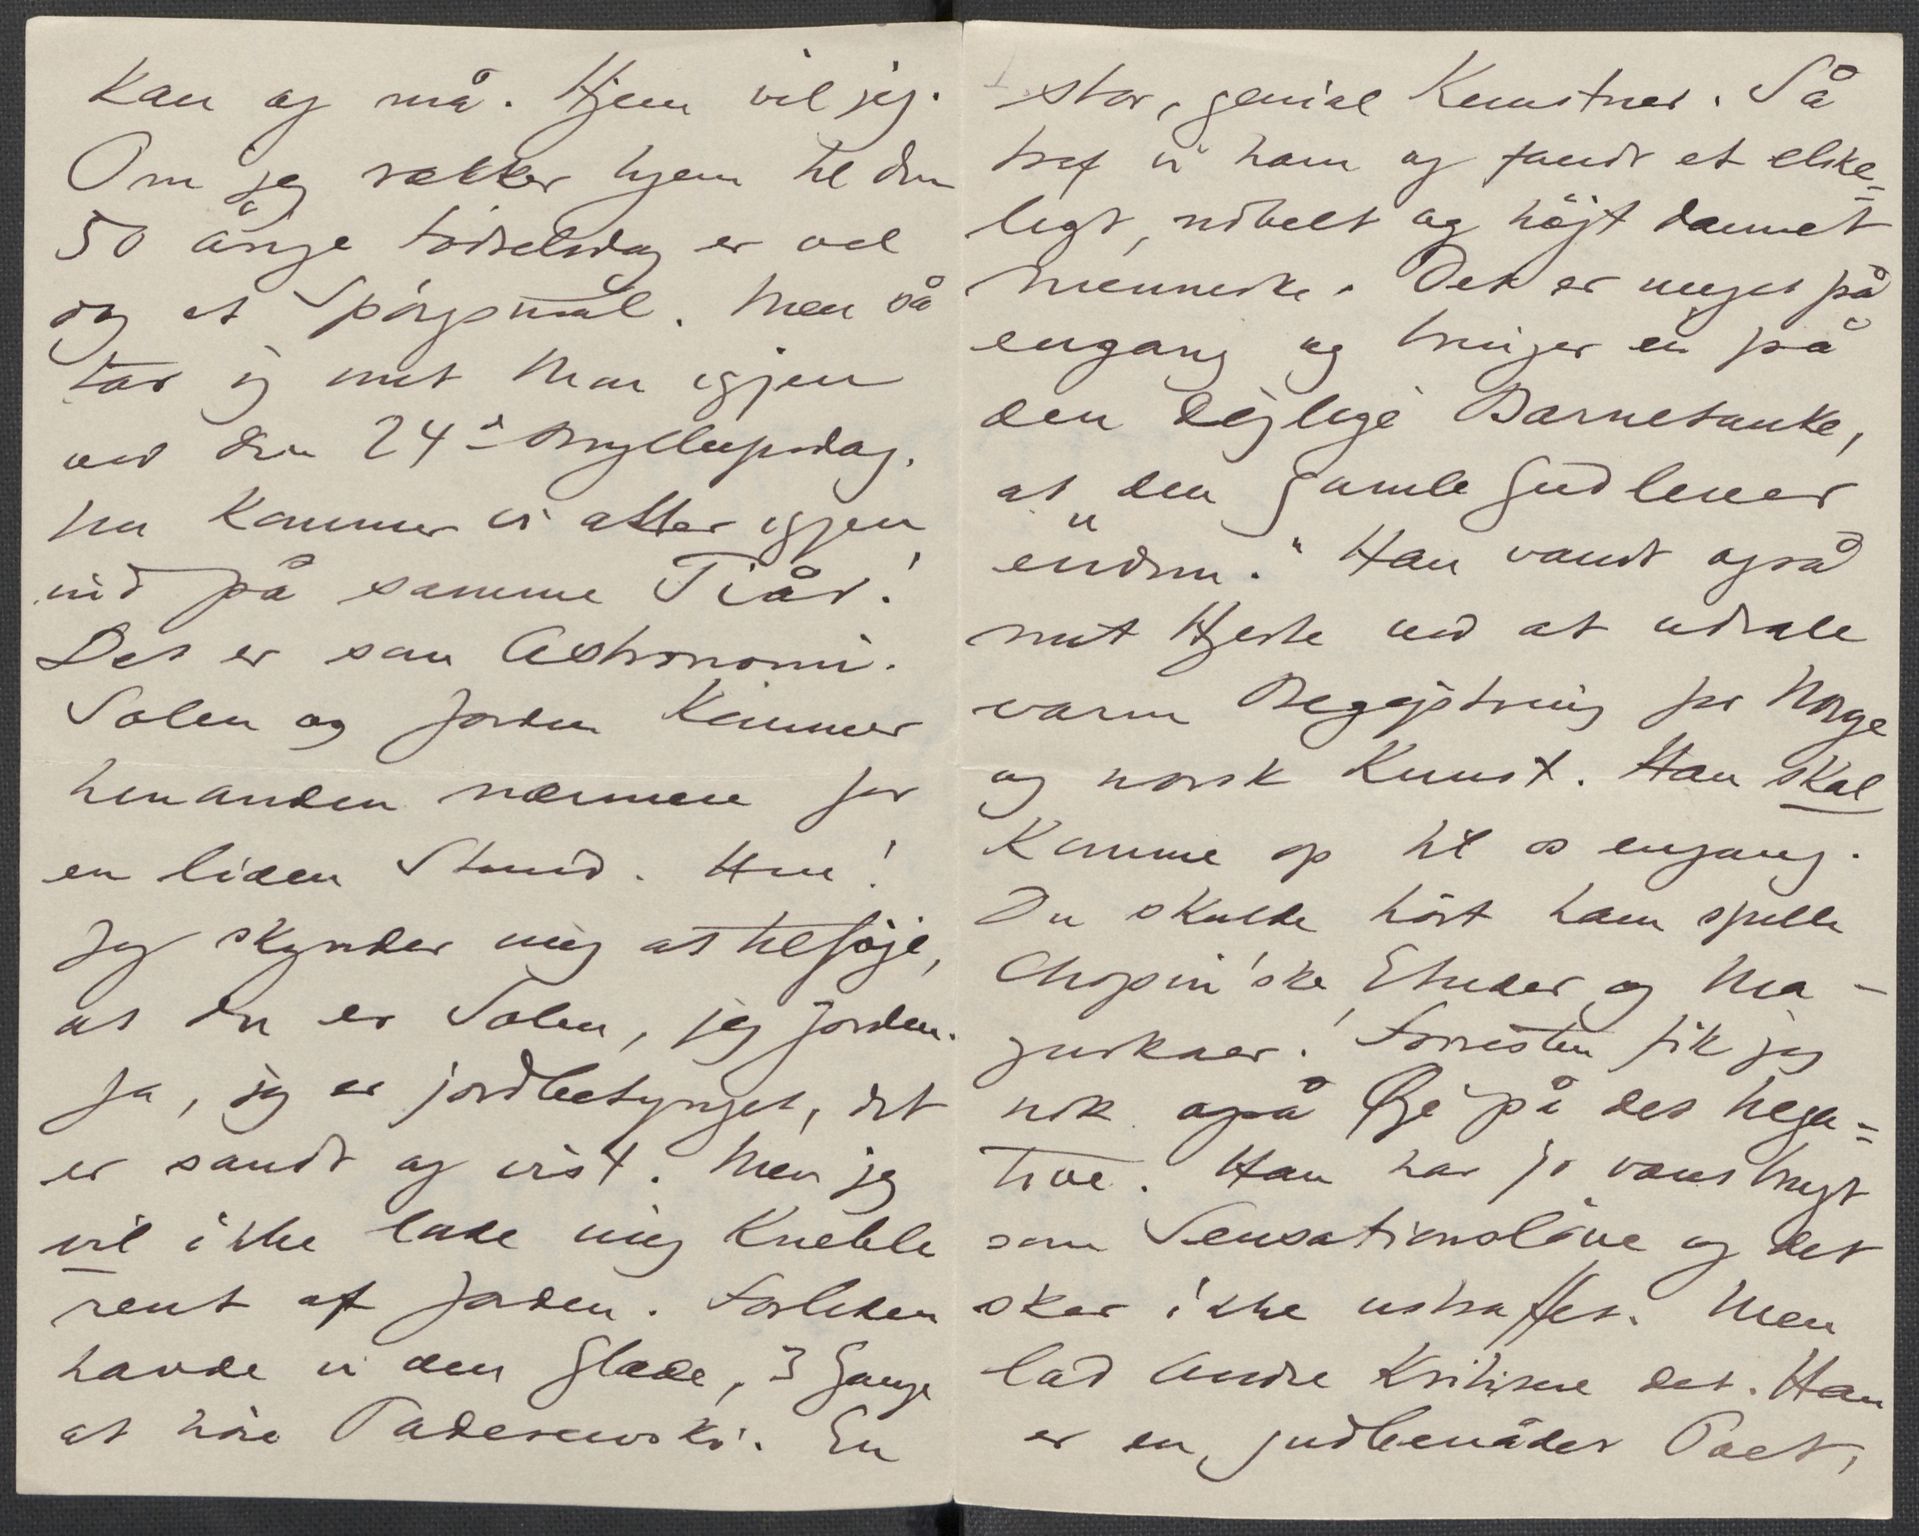 kan og må. Hjem vil jeg.
Om jeg rækker hjem til den
50 årige Fødselsdag er vel
dog et Spørgsmål. Men så
tar jeg mit Mon igjen
ved den 24de Bryllupsdag.
Nu kommer vi atter igjen
ind på samme Tiår!
Det er som Astronomi.
Solen og Jorden kommer
hinanden nærmere for
en liden Stund. Hm!
Jeg skynder mig at tilføje,
at Du er Solen, jeg Jorden.
Ja, jeg er jordbetynget, det
er sandt og vist. Men jeg
vil ikke lade mig kneble
rent af Jorden. Forleden
havde vi den Glæde, 3 Gange
at høre Paderewski. En
stor, genial Kunstner. Så
traf vi ham og fandt et elske=
ligt, nobelt og højt dannet
Menneske. Det er meget på
engang og bringer en på
den dejlige Barnetanke,
at "den gamle Gud lever
endnu." Han vandt også
mit Hjerte ved at udtale
varm Begejstring for Norge
og norsk Kunst. Han skal
komme op til os engang.
Du skulde hørt ham spille
Chopin'ske Etuder og Ma-
zurkaer! Forresten fik jeg
nok også Øje på det Nega=
tive. Han har jo været brugt
som Sensationsløve og det
sker ikke ustraffet. Men
lad Andre kritisere det. Han
er en gudbenådet Poet,